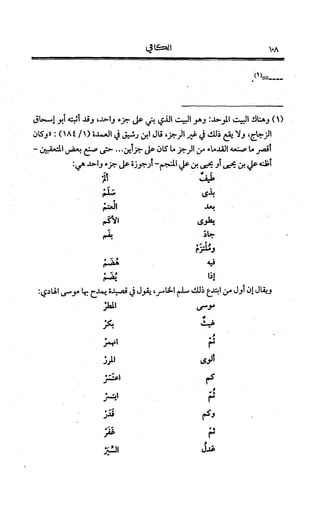 ١٠٨
الكافي
ــــــــ=(١).
(١) وهناك البيت الموحد: وهو البيت الذي بني على جزء واحد، وقد أثبته أبو إسحاق
الزجاج، ولا يقع ذلك في غير الرجز، قال ابن رشيق في العمدة (١/ ١٨٤) : «وكان
أقصر ما صنعه القدماء من الرجز ما كان على جزأين... حتى صنع بعض المتعقبين -
أظنه علي بن يحيى أو يحيى بن علي المنجم- أرجوزة على جزء واحد هي:
طيفٌ ألَمْ
بذي سَلَمْ
بعد العتَمْ
يطوى الأكَمْ
جادَ بفَم
ومُلْتَزَمْ
فيه هَضَمْ
إذا يُضَمْ
ويقال إن أول من ابتدع ذلك سلم الخاسر، يقول في قصيدة يمدح بها موسى الهادي:
موسى المطَرْ
غيثٌ بكَرْ
ثُمَّ انهمَرْ
ألوى المرَرْ
كم اعتسَرْ
ثُمَّ ايتسَرْ
وكم قَدَرْ
ثم غَفَرْ
عَدلُ السِّيَرْ